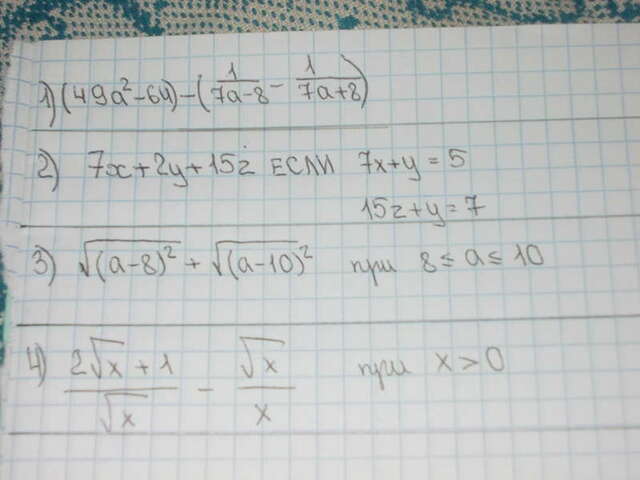 1) (49a²-64)-(1/(7a-8) - 1/(7a+8))
2) 7x+2y+15z ЕСЛИ 7x+y=5
15z+y=7
3) √(a-8)² + √(a-10)² при 8≤a≤10
4) (2√x+1)/√x - √x/x при x>0